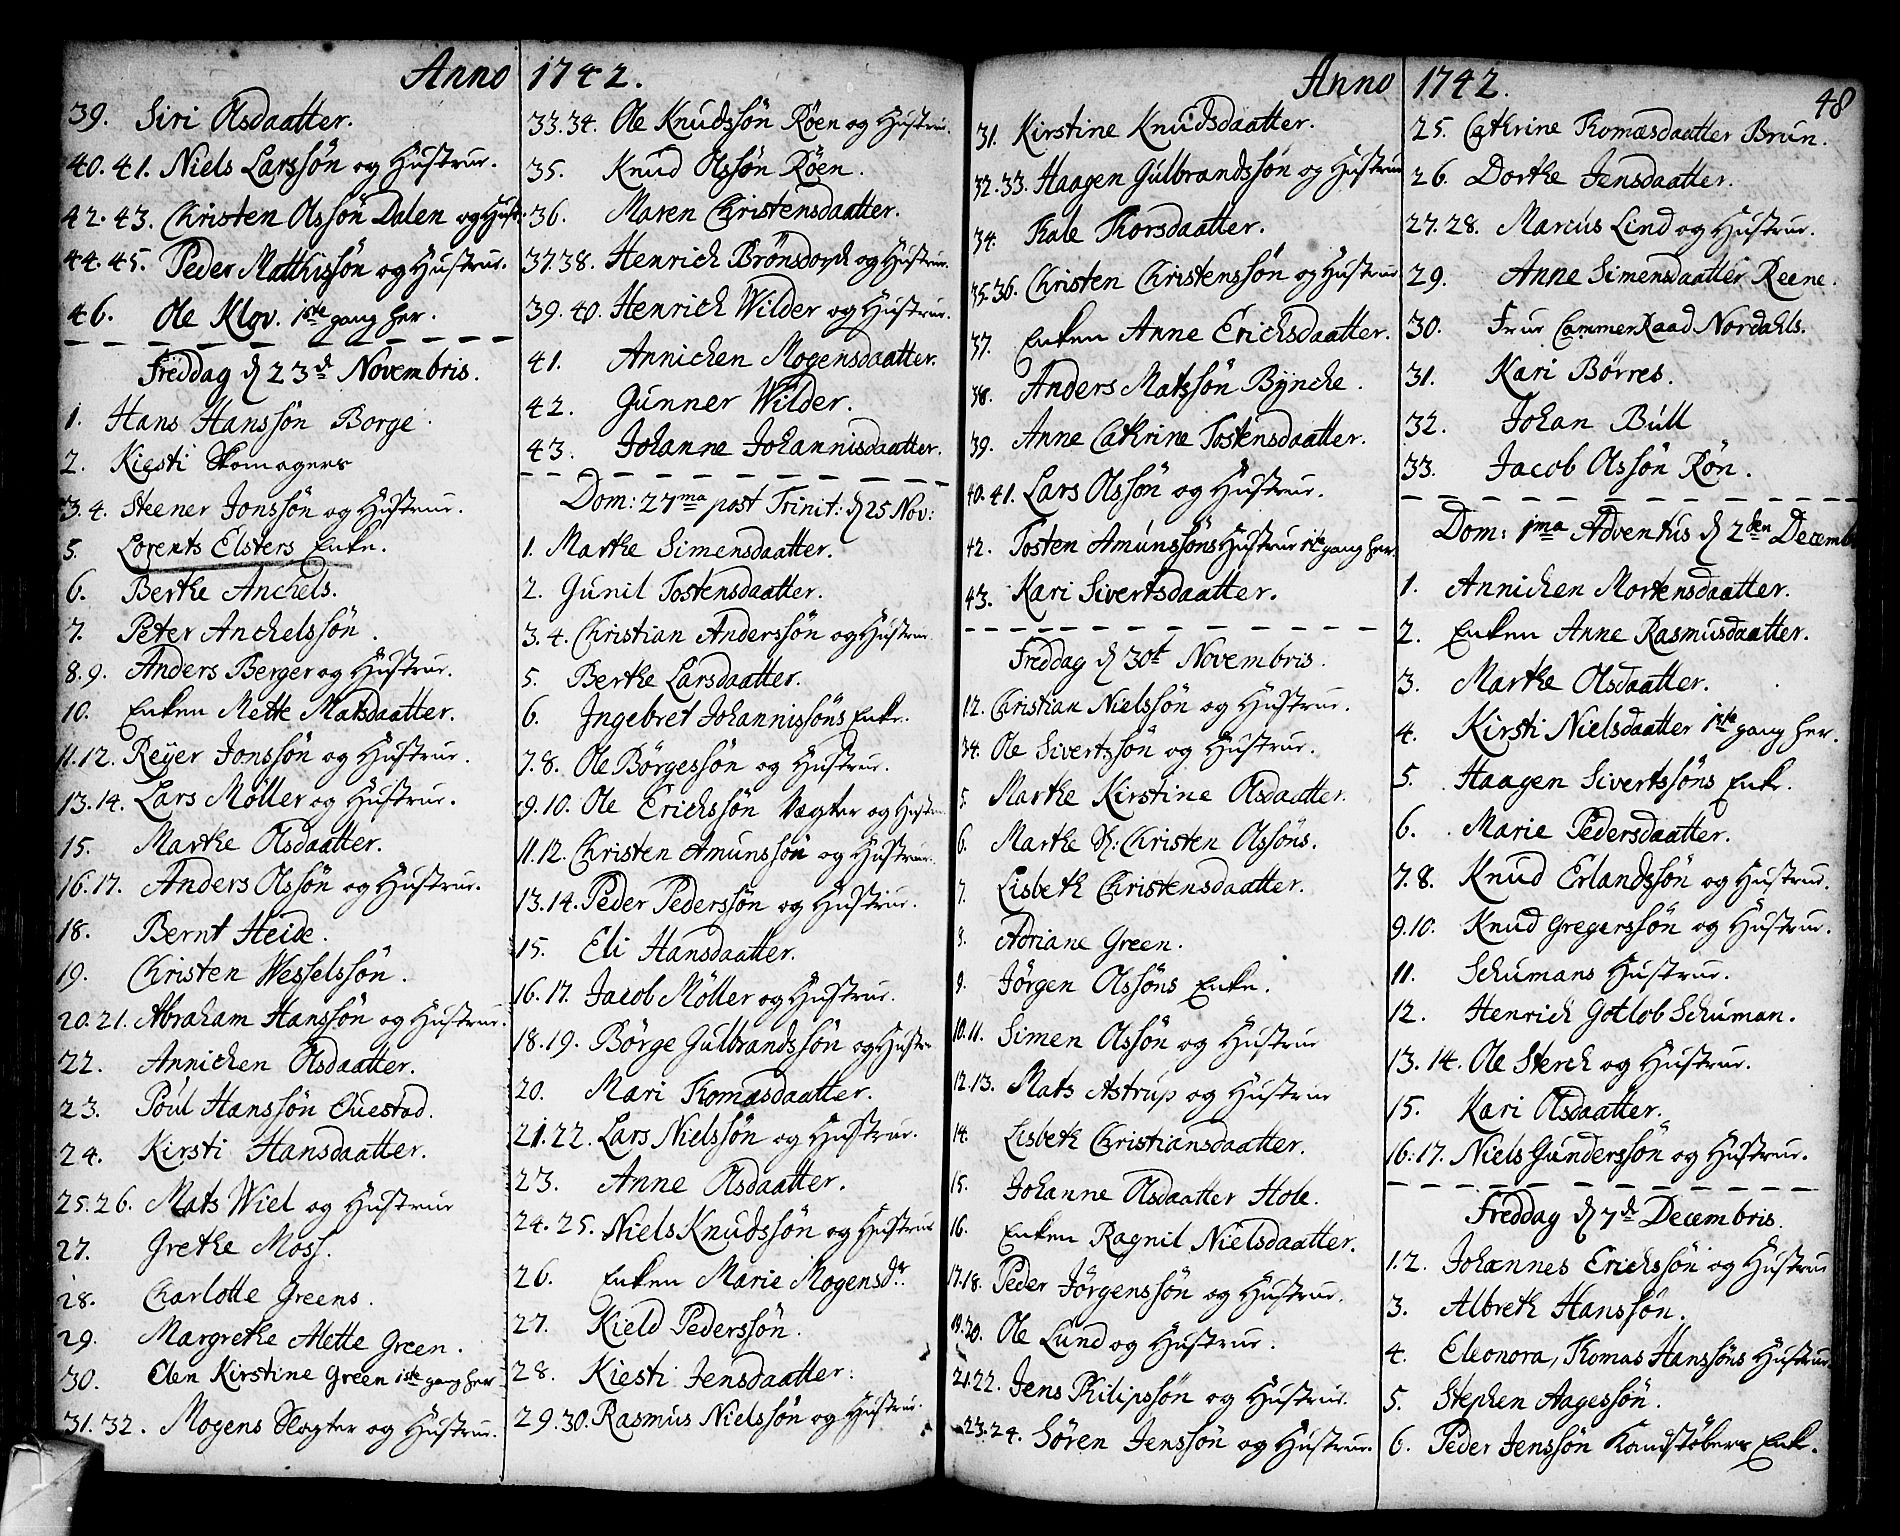 Anno 1742.
39. Siri Olsdaatter.
40. 41. Niels Larssön og Hustrue.
42. 43. Christen Olssön Dalen og Hust:
44. 45. Peder Matthissön og Hustrue.
46. Ole Klov. 1ste gang her.
Freddag d 23de Novembris.
1. Hans Hanssön Borge.
2. Kiesti Skomagers
3. 4. Steener Jonssön og Hustrue.
5. Lorents Elsters Enke.
6. Berthe Anchels.
7. Peter Anchelssön.
8. 9. Anders Berger og Hustrue.
10. Enken Mette Matsdaatter.
11. 12. Reÿer Jonssön og Hustrue.
13. 14. Lars Möller og Hustrue.
15. Marthe Olsdaatter.
16. 17. Anders Olssön og Hustrue.
18. Bernt Heide.
19. Christen Wesselssön.
20. 21. Abraham Hanssön og Hustrue.
22. Annichen Olsdaatter.
23. Poul Hanssön Questad.
24. Kirsti Hansdaatter.
25. 26. Mats Wiel og Hustrue
27. Grethe Moss.
28. Charlotte Greens.
29. Margrethe Alette Green.
30. Elen Kirstine Green 1ste gang her
31. 32. Mogens Slagter og Hustrue.
33. 34. Ole Knudssön Röen og Hustrue.
35. Knud Olssön Röen.
36. Maren Christensdaatter.
37. 38. Henrich Brönsdorph og Hustrue.
39. 40. Henrich Wilder og Hustrue.
41. Annichen Mogensdaatter.
42. Gunner Wilder.
43. Johanne Johannisdaatter.
Dom: 27ma post Trinit: d 25 Nov:
1. Marthe Simensdaatter.
2. Gunil Tostensdaatter.
3. 4. Christian Anderssön og Hustrue
5. Berthe Larsdaatter.
6. Ingebret Johannissöns Enke.
7. 8. Ole Börgessön og Hustrue.
9. 10. Ole Erichssön Vægter og Hustrue
11. 12. Christen Amunssön og Hustrue.
13. 14. Peder Pederssön og Hustrue.
15. Eli Hansdaatter.
16. 17. Jacob Möller og Hustrue.
18. 19. Börge Gulbrandssön og Hustrue
20. Mari Thomæsdaatter.
21. 22. Lars Nielssön og Hustrue.
23. Anne Olsdaatter.
24. 25. Niels Knudssön og Hustrue
26. Enken Marie Mogensdr.
27. Kield Pederssön.
28. Kiesti Jensdaatter:
29. 30. Rasmus Nielssön og Hustrue.
Anno 1742. 48
31. Kirstine Knudsdaatter.
32. 33. Haagen Gulbrandssön og Hustrue
34. Kale Thorsdaatter.
35. 36. Christen Christenssön og Hustrue
37. Enken Anne Erichsdaatter.
38. Anders Matssön Bÿnche.
39. Anne Cathrine Tostensdaatter.
40. 41. Lars Olssön og Hustrue.
42. Tosten Amunssöns Hustrue 1ste gang her.
43. Kari Sivertsdaatter.
Freddag d 30t Novembris.
12. Christian Nielssön og Hustrue.
34. Ole Sivertssön og Hustrue.
5. Marthe Kirstine Olsdaatter.
6. Marthe S: Christen Olssöns.
7. Lisbeth Christensdaatter.
8. Adriane Green.
9. Jörgen Olssöns Enke.
10. 11. Simen Olssön og Hustrue
12. 13. Mats Astrup og Hustrue
14. Lisbeth Christiansdaatter.
15. Johanne Olsdaatter Hole.
16. Enken Ragnil Nielsdaatter.
17. 18. Peder Jörgenssön og Hustrue.
19. 20. Ole Lund og Hustrue.
21. 22. Jens Philipssön og Hustrue.
23. 24. Sören Jenssön og Hustrue.
25. Cathrine Thomæsdaatter Brun.
26. Dorthe Jensdaatter.
27. 28. Marcus Lind og Hustrue.
29. Anne Simensdaatter Reene.
30. Frue CammerRaad Nordahls.
31. Kari Börres.
32. Johan Bull
33. Jacob Olssön Rön.
Dom: 1ma Adventus d 2den Decemb
1. Annichen Mortensdaatter.
2. Enken Anne Rasmusdaatter.
3. Marthe Olsdaatter.
4. Kirsti Nielsdaatter 1ste gang her.
5. Haagen Sivertssöns Enke.
6. Marie Pedersdaatter.
7. 8. Knud Erlandssön og Hustrue.
9. 10. Knud Gregerssön og Hustrue.
11. Schumans Hustrue.
12. Henrich Gotlob Schuman.
13. 14. Ole Sterch og Hustrue.
15. Kari Olsdaatter.
16. 17. Niels Gunderssön og Hustrue.
Freddag d 7de Decembris.
1. 2. Johannes Erichssön og Hustrue
3. Albreth Hanssön.
4. Eleonora, Thomas Hanssöns Hustrue.
5. Stephen Aagessön.
6. Peder Jenssön Kandstöbers Enke.